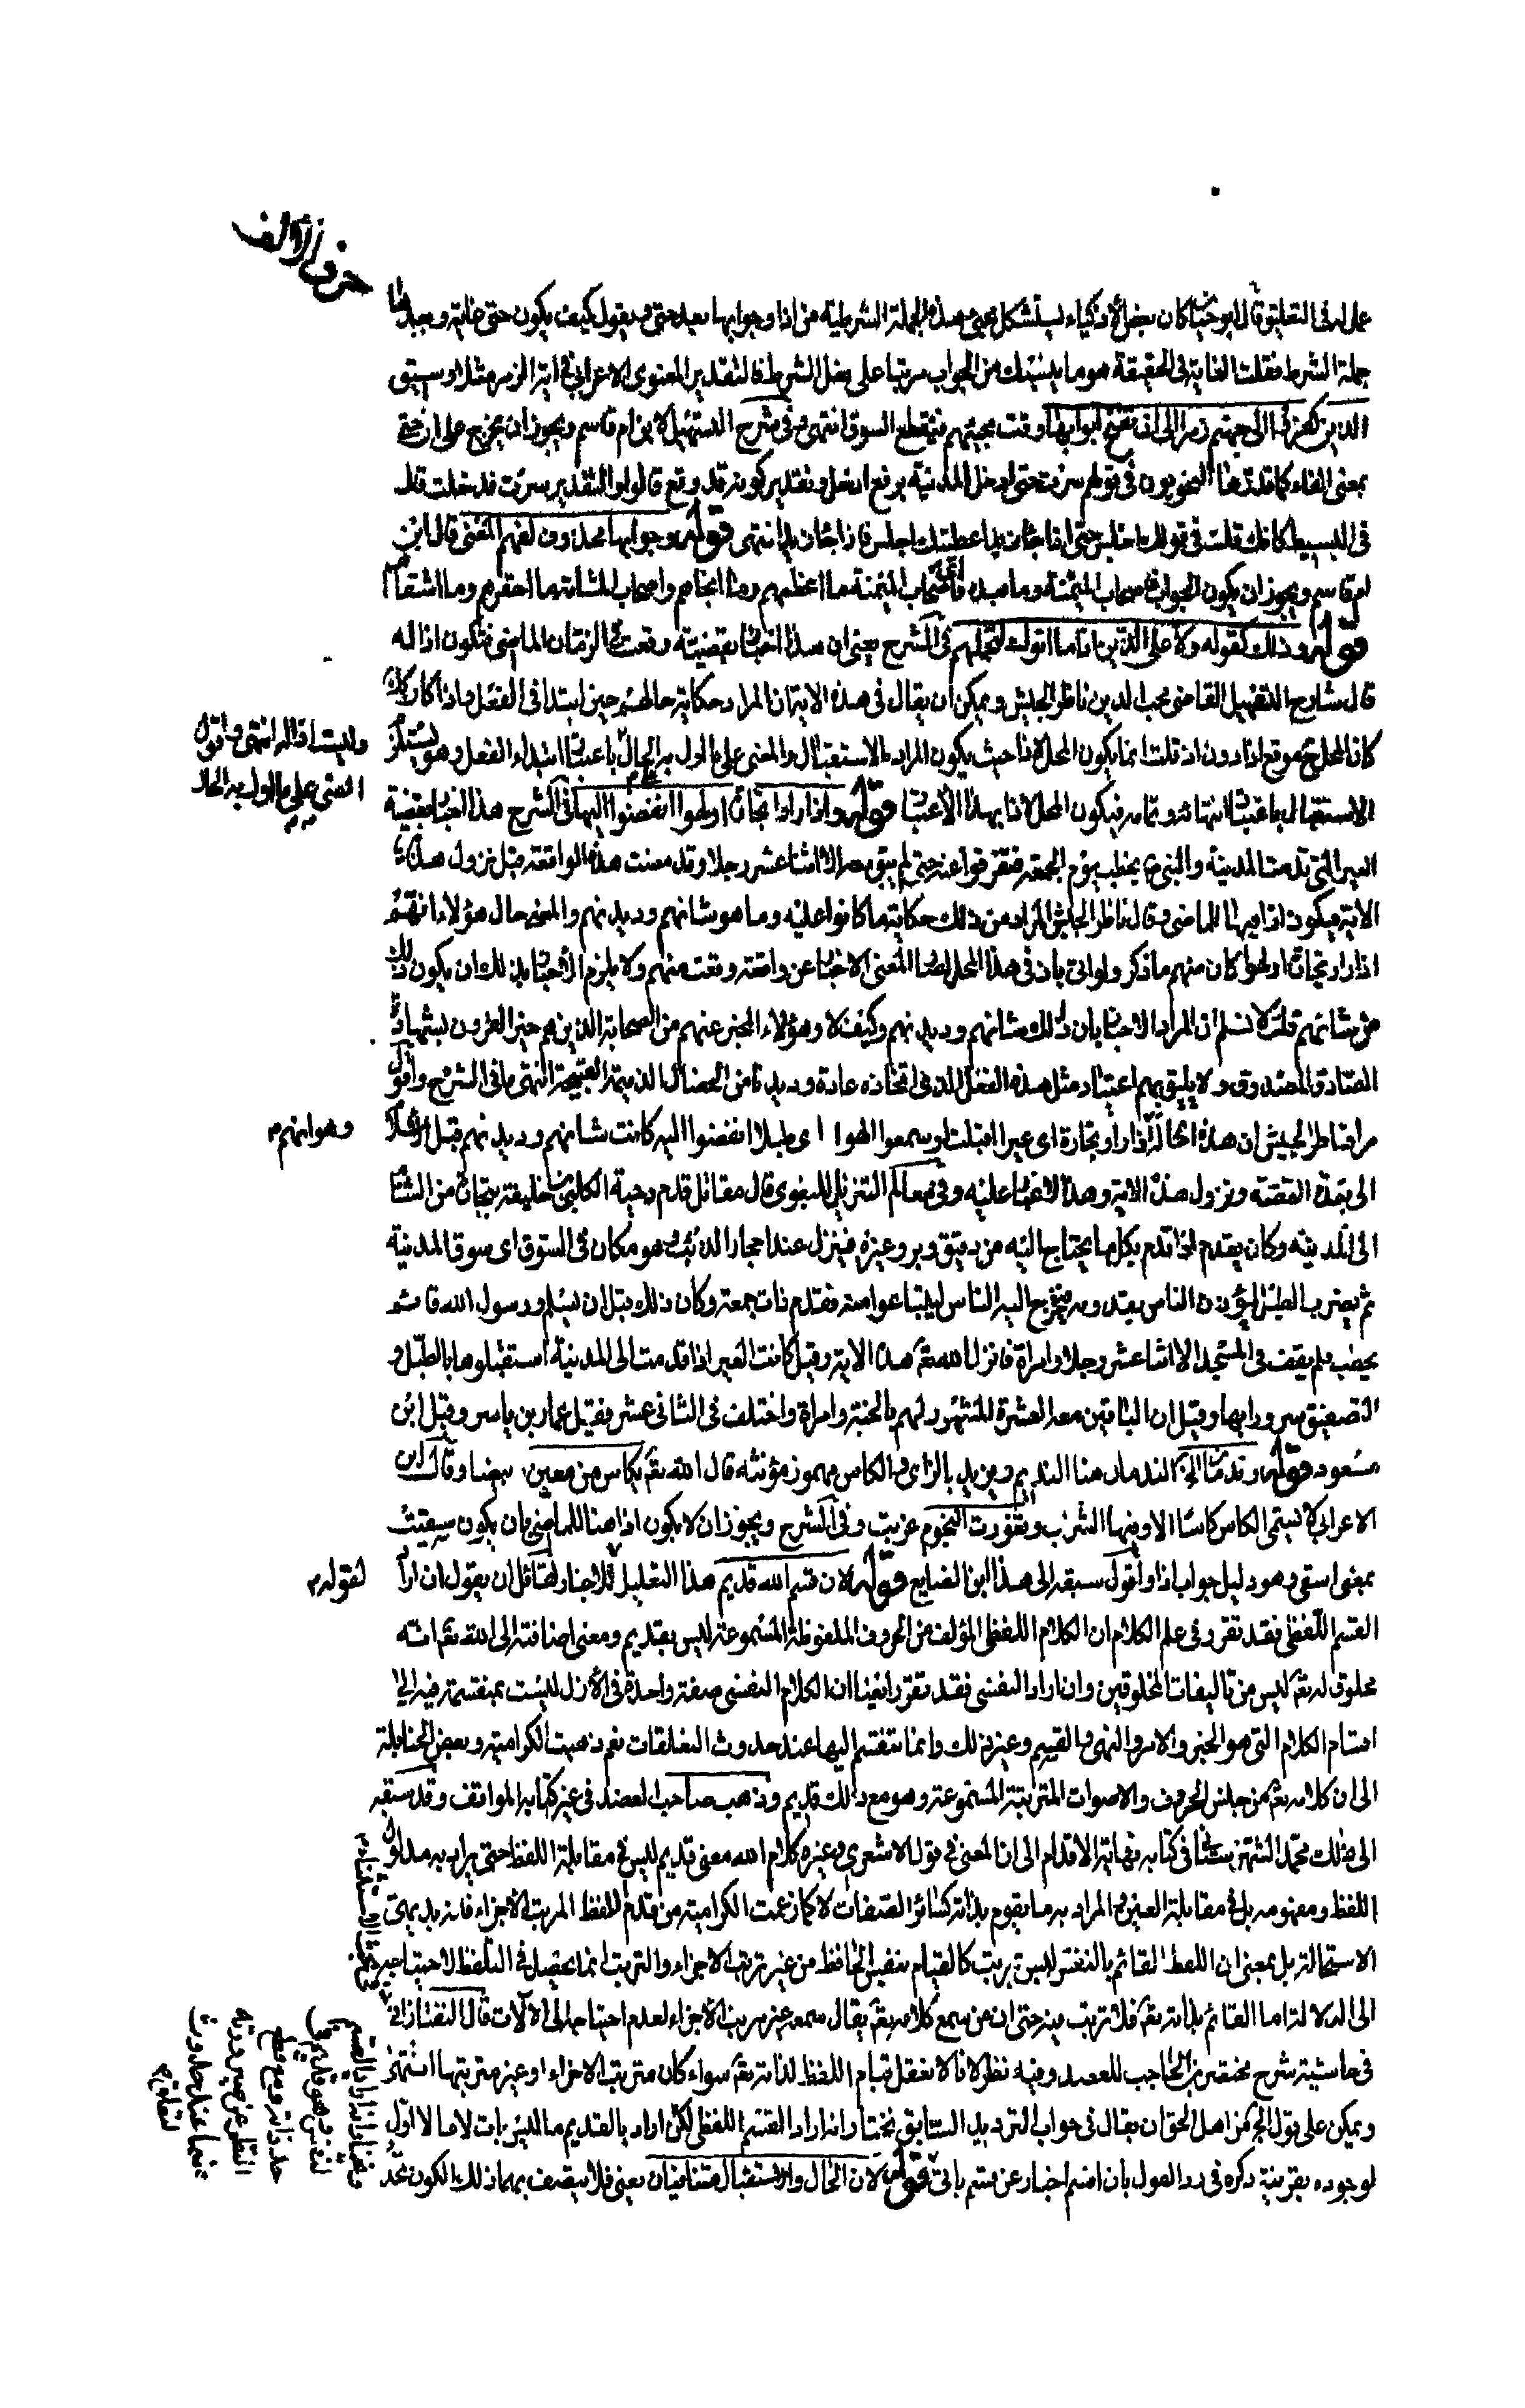 حرف الألف
عمل له في التعليق قال ابو حيان كان بعض الاذكياء يستشكل مجيئ هذه الجملة الشرطية من اذا وجوابها بعد حتى ويقول كيف يكون حتى غاية وبعدها
جملة الشرط فقلت الغاية في الحقيقة هو ما ينسبك من الجواب مرتبا على فعل الشرط فالتقدير المعنوي الاعرابي في آية الزمر مثلا وسيق
الذين كفروا الى جهنم زمرا الى ان تفتح ابوابها وقت مجيئهم فينقطع السوق انتهى وفي شرح التسهيل لابن ام قاسم ويجوز ان يخرج على ان حتى
بمعنى الفاء كما قدرها النحويون في قولهم سرت حتى ادخل المدينة برفع ادخل وتقدير كونه قد وقع قالوا والتقدير سرت فدخلت قال
في البسيط كانك قلت في قولك اجلس حتى اذا جاء زيد اعطيتك اجلس فاذا جاء زيد انتهى قوله وجوابها محذوف لفهم المعنى قال ابن
ام قاسم ويجوز ان يكون الجواب فاصحاب الميمنة وما بعده فاصحاب الميمنة ما اعظمهم وما انجاهم واصحاب المشأمة ما احقرهم وما اشقاهم
قوله وذلك كقوله ولا على الذين اذا ما اتوك لتحملهم في الشرح يعني ان هذا اخبار بقضية وقعت في الزمان الماضي فتكون اذا له
قال شارح التسهيل القاضي محب الدين ناظر الجيش ويمكن ان يقال في هذه الاية ان المراد حكاية حالهم حين ابتدا في الفعل واذا كان كذلك
كان المحل موقع اذا دون اذ قلت انما يكون المحل لاذا حيث يكون المراد الاستقبال والمعنى على الاول به الحال باعتبار ابتداء الفعل وهو يستلزم
وليست اذا له انتهى واقول
المعنى على الاول به الحال
الاستقبال باعتبار انتهائه وتمامه فيكون المحل لاذا بهذا الاعتبار قوله واذا راوا تجارة او لهوا انفضوا اليها في الشرح هذا اخبار بقضية
العير التي قدمت المدينة والنبي يخطب يوم الجمعة فتفرقوا عنه حتى لم يبق معه الا اثنا عشر رجلا وقد مضت هذه الواقعة قبل نزول هذه
الاية فيكون اذا فيها للماضي وقال ناظر الجيش المراد من ذلك حكاية ما كانوا عليه وما هو شانهم وديدنهم والمعنى حال هؤلاء انهم
اذا راوا تجارة او لهوا كان منهم ما ذكر ولو اتي باذ في هذا المحل لصار المعنى الاخبار عن واقعة وقعت منهم ولا يلزم الاخبار بذلك ان يكون ذلك
من شانهم قلت لا نسلم ان المراد الاخبار بان ذلك شانهم وديدنهم وكيف لا وهؤلاء المخبر عنهم من الصحابة الذين هم خير القرون بشهادة
الصادق المصدوق ولا يليق بهم اعتياد مثل هذه الفعل الذي اتخاذه عادة وديدنا من الخصال الذميمة القبيحة انتهى ما في الشرح واقول
مراد ناظر الجيش ان هذه الحالة اذا راوا تجارة اي عيرا اقبلت او سمعوا لهوا اي طبلا انفضوا اليه كانت شانهم وديدنهم قبل
وهو انهم
الى هذه القصة ونزول هذه الاية وهذا لا غبار عليه وفي معالم التنزيل للبغوي قال مقاتل قدم دحية الكلبي بن خليفة بتجارة من الشام
الى المدينة وكان يقدم اذا قدم بكل ما يحتاج اليه من دقيق وبر وغيره فينزل عند احجار الزيت وهو مكان في السوق اي سوق المدينة
ثم يضرب الطبل ليؤذن الناس بقدومه فيخرج اليه الناس ليبتاعوا منه فقدم ذات جمعة وكان ذلك قبل ان يسلم ورسول الله قائم
يخطب فلم يقف في المسجد الا اثنا عشر رجلا وامراة فانزل الله تعالى هذه الاية وقيل كانت العير اذا قدمت الى المدينة استقبلوها بالطبل و
التصفيق سرورا بها وقيل ان الباقين معه العشرة المشهود لهم بالجنة وامراة واختلف في الثاني عشر فقيل عمار بن ياسر وقيل ابن
مسعود قوله وندمان الخ الندمان هنا النديم ويزيد بالزاي والكاس مهموز مؤنثة قال الله تعالى بكاس من معين بيضا وقال ابن
الاعرابي لا تسمى الكاس كاسا الا وفيها الشراب وتغورت النجوم غربت وفي الشرح ويجوز ان لا يكون اذا هنا للماضي بان يكون سقيت
بمعنى اسقي وهو دليل جواب اذا واقول سبقه الى هذا ابن الضايع قوله لان قسم الله قديم هذا التعليل للاخبار لقائل ان يقول ان اراد
لقوله
القسم اللفظي فقد تقرر في علم الكلام ان الكلام اللفظي المؤلف من الحروف الملفوظة المسموعة ليس بقديم ومعنى اضافته الى الله تعالى انه
مخلوق له تعالى ليس من تاليفات المخلوقين وان اراد النفسي فقد تقرر ايضا ان الكلام النفسي صفة واحدة في الازل ليست بمنقسمة فيه الى
اقسام الكلام التي هو الخبر والامر والنهي والقسم وغير ذلك وانما تنقسم اليها عند حدوث التعلقات نعم ذهبت الكرامية وبعض الحنابلة
الى ان كلامه تعالى من جنس الحروف والاصوات المترتبة المسموعة وهو مع ذلك قديم وذهب صاحب العضد في غير كتابه المواقف وقد سبقه
الى ذلك محمد الشهرستاني في كتابه نهاية الاقدام الى ان المعنى في قول الاشعري وغيره كلام الله معنى قديم ليس في مقابلة اللفظ حتى يراد به مدلول
اللفظ ومفهومه بل في مقابلة العين والمراد به ما يقوم بذاته كسائر الصفات لا كما زعمت الكرامية من قدم اللفظ المرتب الاجزاء فانه بديهي
الاستحالة بل بمعنى ان اللفظ القائم بالنفس ليس بمرتب كالقيام بنفس الحافظ من غير ترتب الاجزاء والترتب انما يحصل في التلفظ لاحتياجه
الى الالة اما القائم بذاته تعالى فلا ترتب فيه حتى ان من سمع كلامه تعالى يقال سمعه غير مرتب الاجزاء لعدم احتياجه الى الالات قال التفتازاني
في حاشية شرح مختصر ابن الحاجب للعضد وفيه نظر لانا لا نعقل قيام اللفظ لذاته تعالى سواء كان مترتب الاجزاء او غير مترتبها انتهى
ويمكن على قول الجم من اهل الحق ان يقال في جواب الترديد السابق نختار انه اراد القسم اللفظي لكن اراد بالقديم ما ليس بات لا ما لا اول
لوجوده بقرينة ذكره في رد القول بان اقسم اخبار عن قسم ياتي قوله لان الحال والاستقبال متنافيان يعني فلا يتصف بهما ذلك الكون